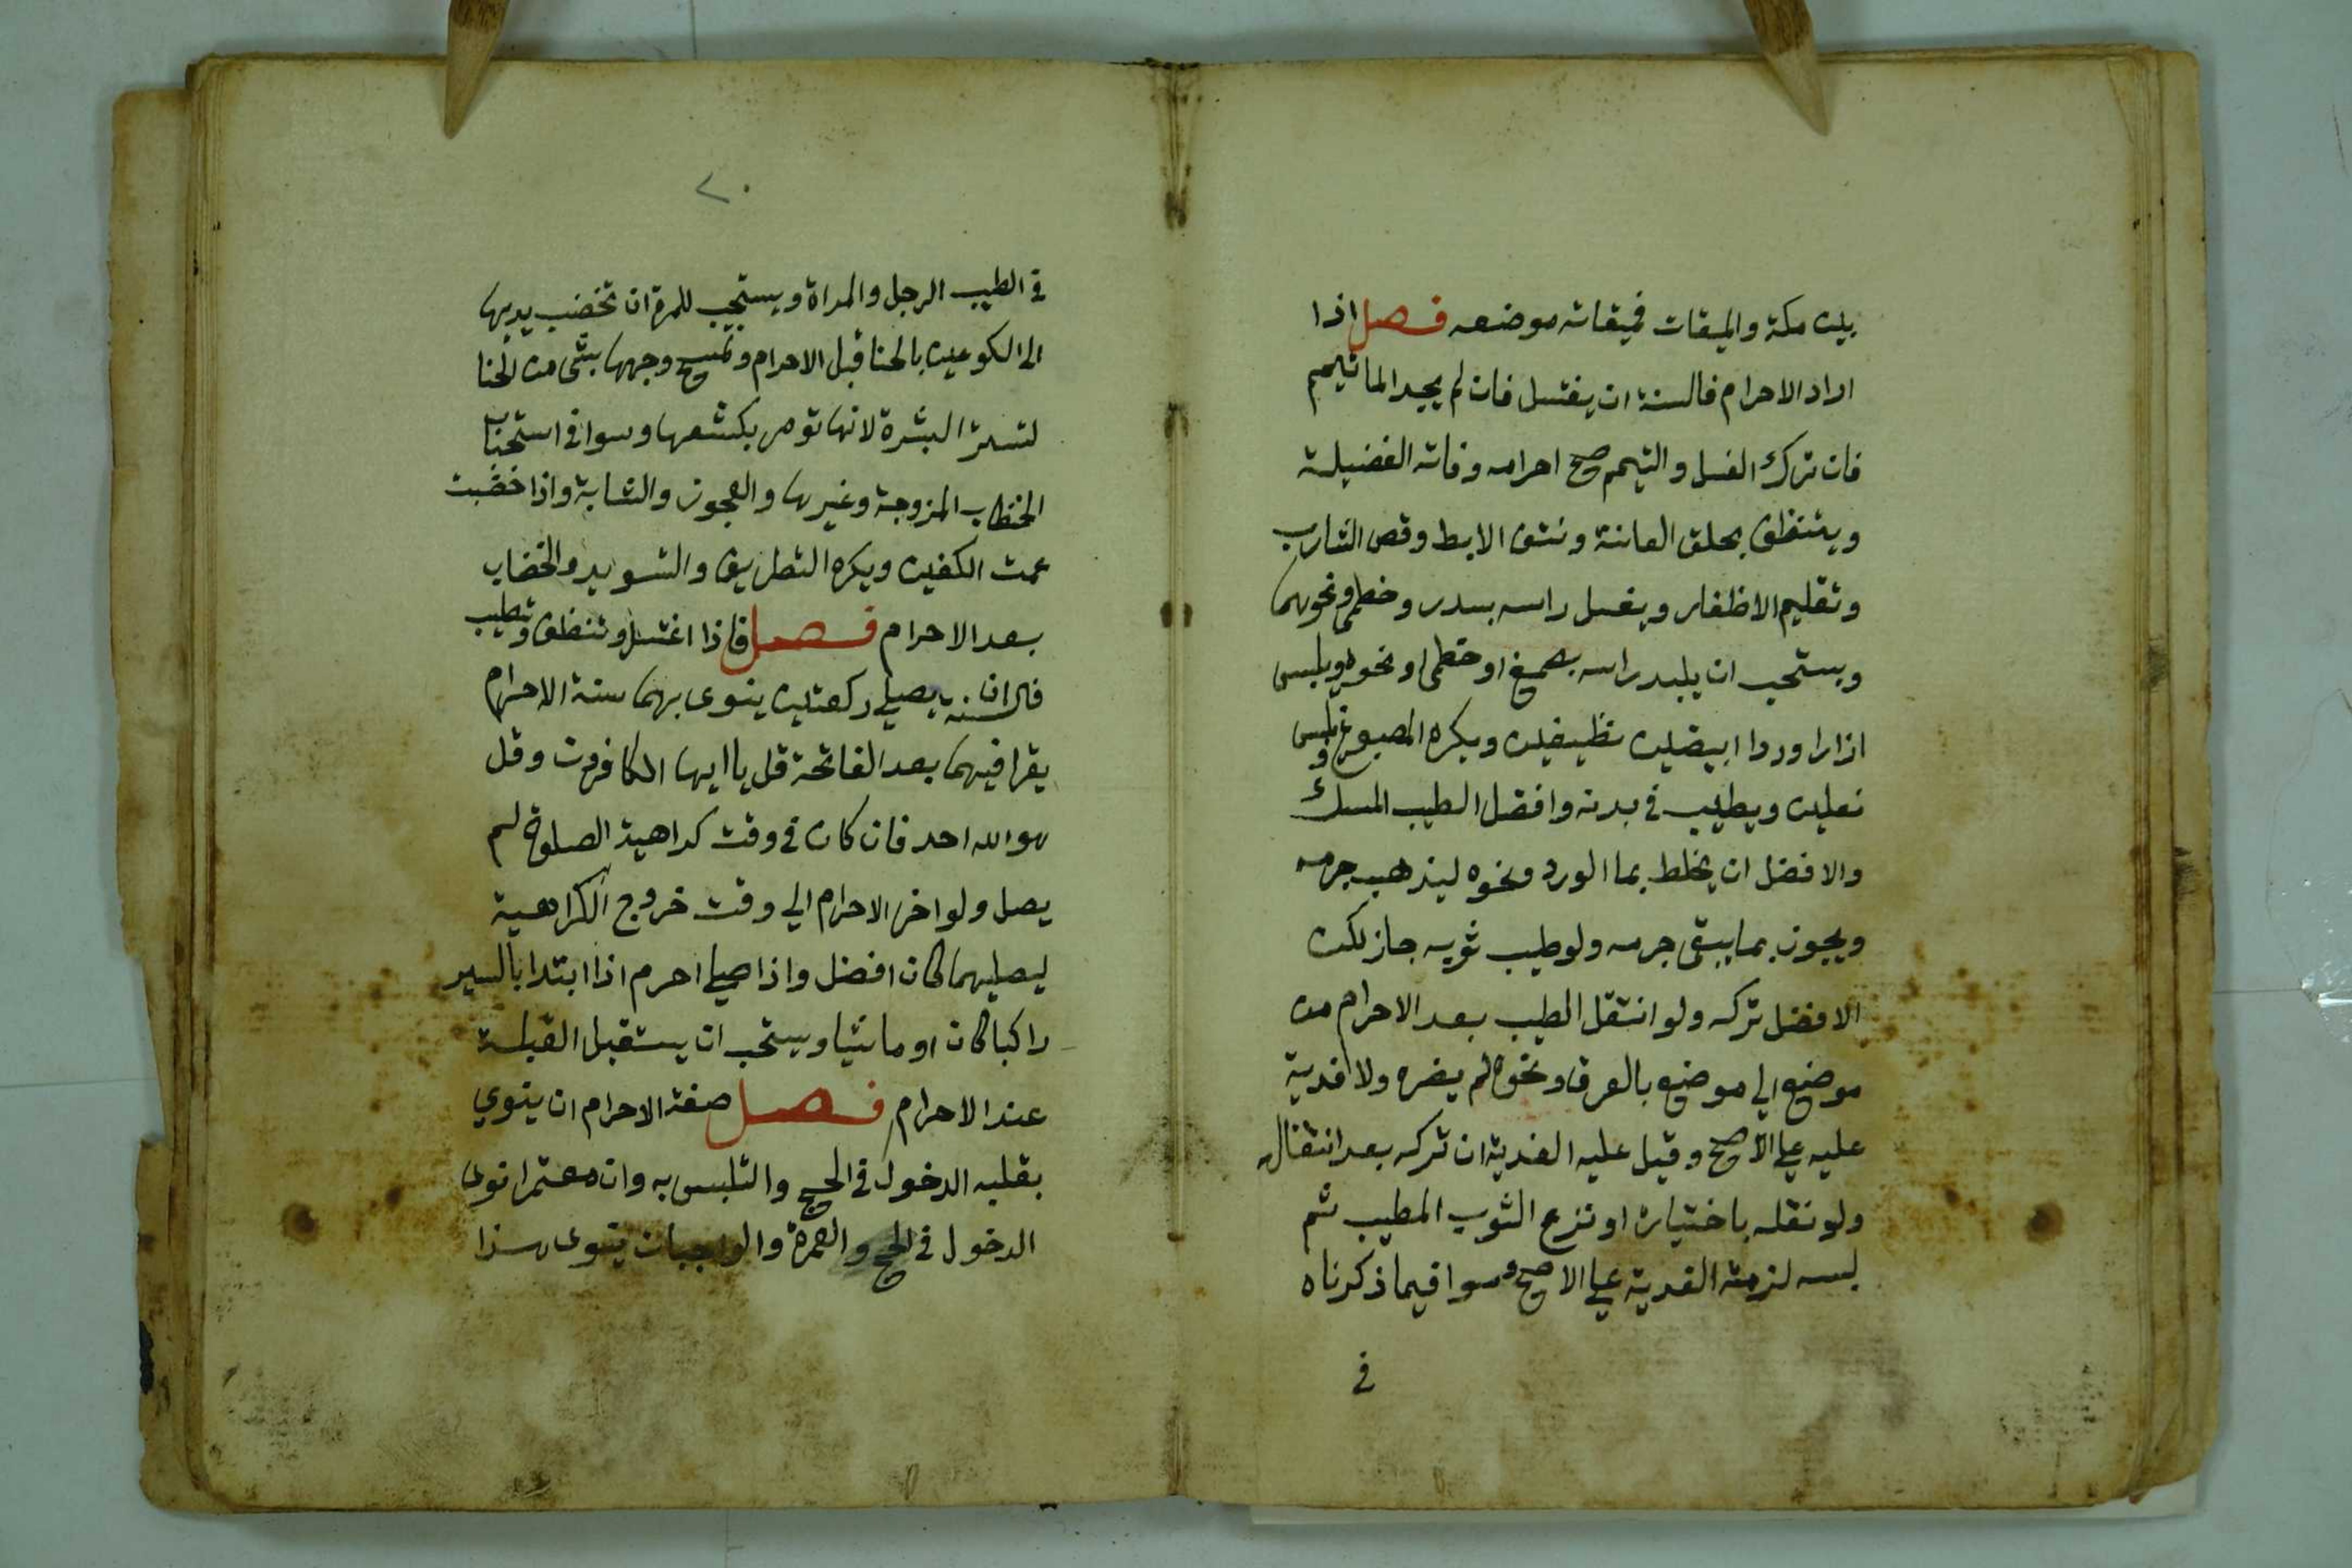 بين مكة والميقات فميقاته موضعه فصل اذا
اراد الاحرام فالسنة ان يغتسل فان لم يجد الما تيمم
فان ترك الغسل والتيمم صح احرامه وفاته الفضيلة
ويتنظف بحلق العانة ونتف الابط وقص الشارب
وتقليم الاظفار ويغسل راسه بسدر وخطمي ونحوهما
ويستحب ان يلبد راسه بصمغ او خطمى او نحوه ويلبس
ازارا وردا ابيضين نظيفين ويكره المصبوغ ويلبس
نعلين ويطيب في بدنه وافضل الطيب المسك
والافضل ان يخلط بما الورد ونحوه ليذهب جرمه
ويجوز بما يبقى جرمه ولو طيب ثوبه جاز لكن
الافضل تركه ولو انتقل الطيب بعد الاحرام من
موضع الي موضع بالعرق ونحوه لم يضره ولا فدية
عليه علي الاصح وقيل عليه الفدية ان تركه بعد انتقاله
ولو نقله باختياره او نزع الثوب المطيب ثم
لبسه لزمته الفدية علي الاصح وسوا فيما ذكرناه
في
٢٠
في الطيب الرجل والمراة ويستحب للمرة ان تخضب يديها
الى الكوعين بالحنا قبل الاحرام وتمسح وجهها بشى من الحنا
لتستر البشرة لانها تومر بكشفها وسوا في استحباب
الخضاب المزوجة وغيرها والعجوز والشابة واذا خضبت
عمت الكفين ويكره التطريف والتسويد والخضاب
بعد الاحرام فصل فاذا اغتسل وتنظف وتطيب
فالسنة ان يصلي ركعتين ينوى بهما سنة الاحرام
يقرا فيهما بعد الفاتحة قل يا ايها الكافرون وقل
هو الله احد فان كان في وقت كراهية الصلوة لم
يصل ولو اخر الاحرام الي وقت خروج الكراهية
ليصليهما كان افضل واذا صلي احرم اذا ابتدا بالسير
راكبا كان او ماشيا ويستحب ان يستقبل القبلة
عند الاحرام فصل صفة الاحرام ان ينوي
بقلبه الدخول في الحج والتلبس به وان معتمرا نوى
الدخول في الحج والعمرة والواجبات ينوى هذا